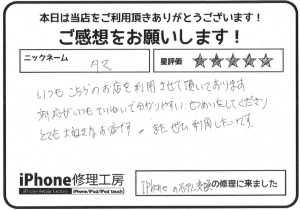 本日は当店をご利用頂きありがとうございます！
ご感想をお願いします！
ニックネーム タマ 星評価 ★★★★★
いつもこちらのお店を利用させて頂いております
対応がいつもていねいで分かりやすい せつめいをしてくださり
とても大好きなお店です。 また ぜひ利用したいです。
iPhone修理工房 iPhoneの ガラス交換 の修理に来ました
iPhone Repair Factory iPhone/iPad/iPod touch